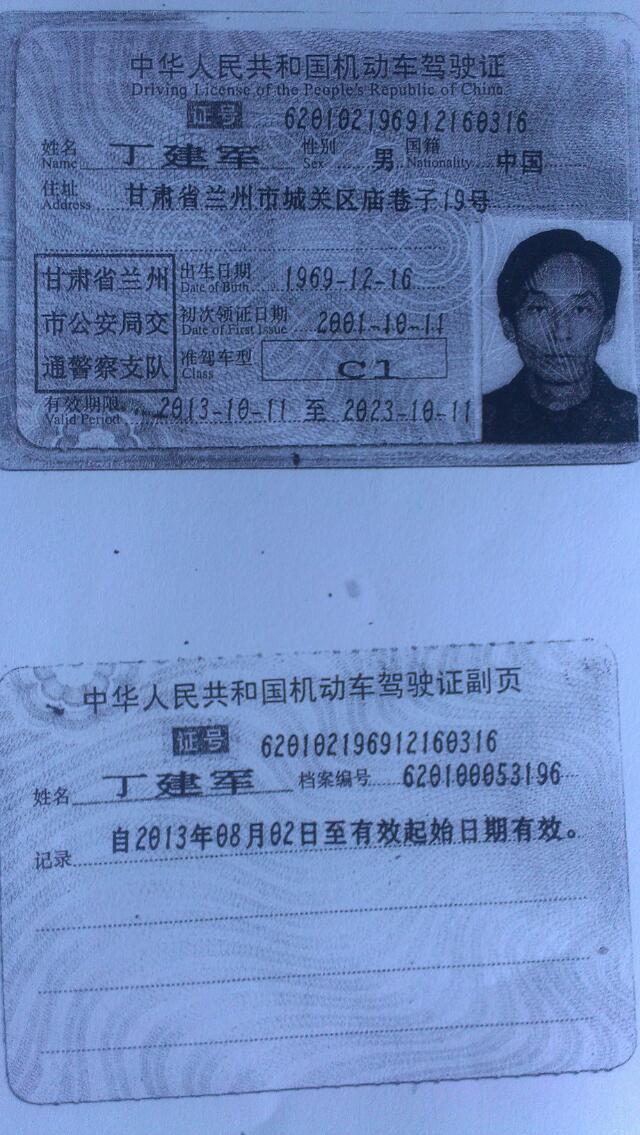 中华人民共和国机动车驾驶证
Driving License of the People's Republic of China
证号 620102196912160316
姓名 Name 丁建军 性别 Sex 男 国籍 Nationality 中国
住址 Address 甘肃省兰州市城关区庙巷子19号
甘肃省兰州
市公安局交
通警察支队
出生日期 Date of Birth 1969-12-16
初次领证日期 Date of First Issue 2001-10-11
准驾车型 Class C1
有效期限 Valid Period 2013-10-11 至 2023-10-11
中华人民共和国机动车驾驶证副页
证号 620102196912160316
姓名 丁建军 档案编号 620100053196
记录 自2013年08月02日至有效起始日期有效。